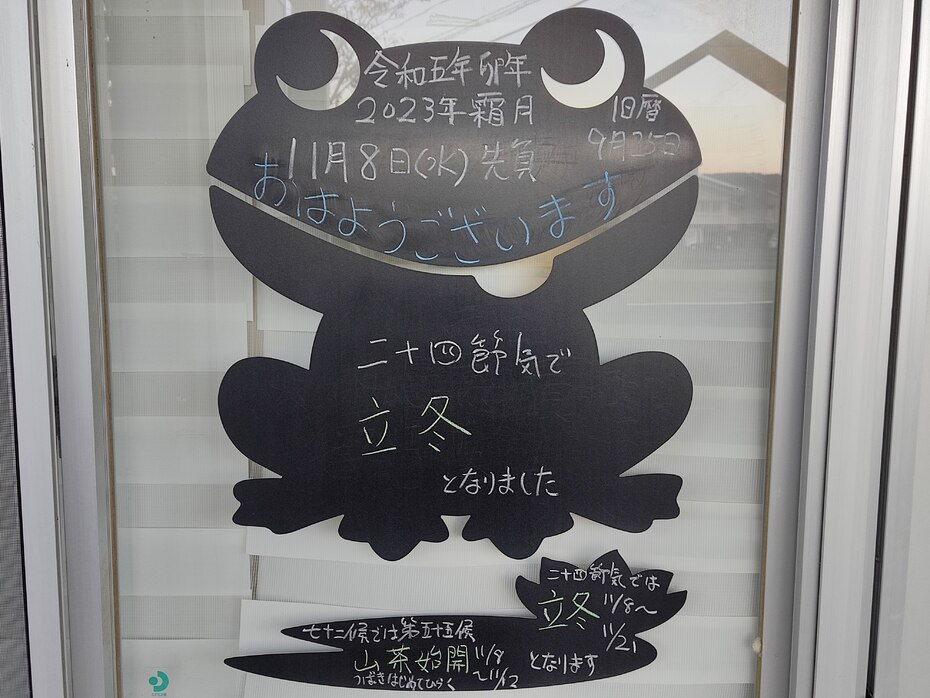 令和五年卯年
2023年霜月
旧暦
9月25日
11月8日(水)先負
おはようございます
二十四節気で
立冬
となりました
二十四節気では
立冬 11/8〜
11/21
となります
七十二候では第五十五候
山茶始開 11/8
〜11/12
つばきはじめてひらく